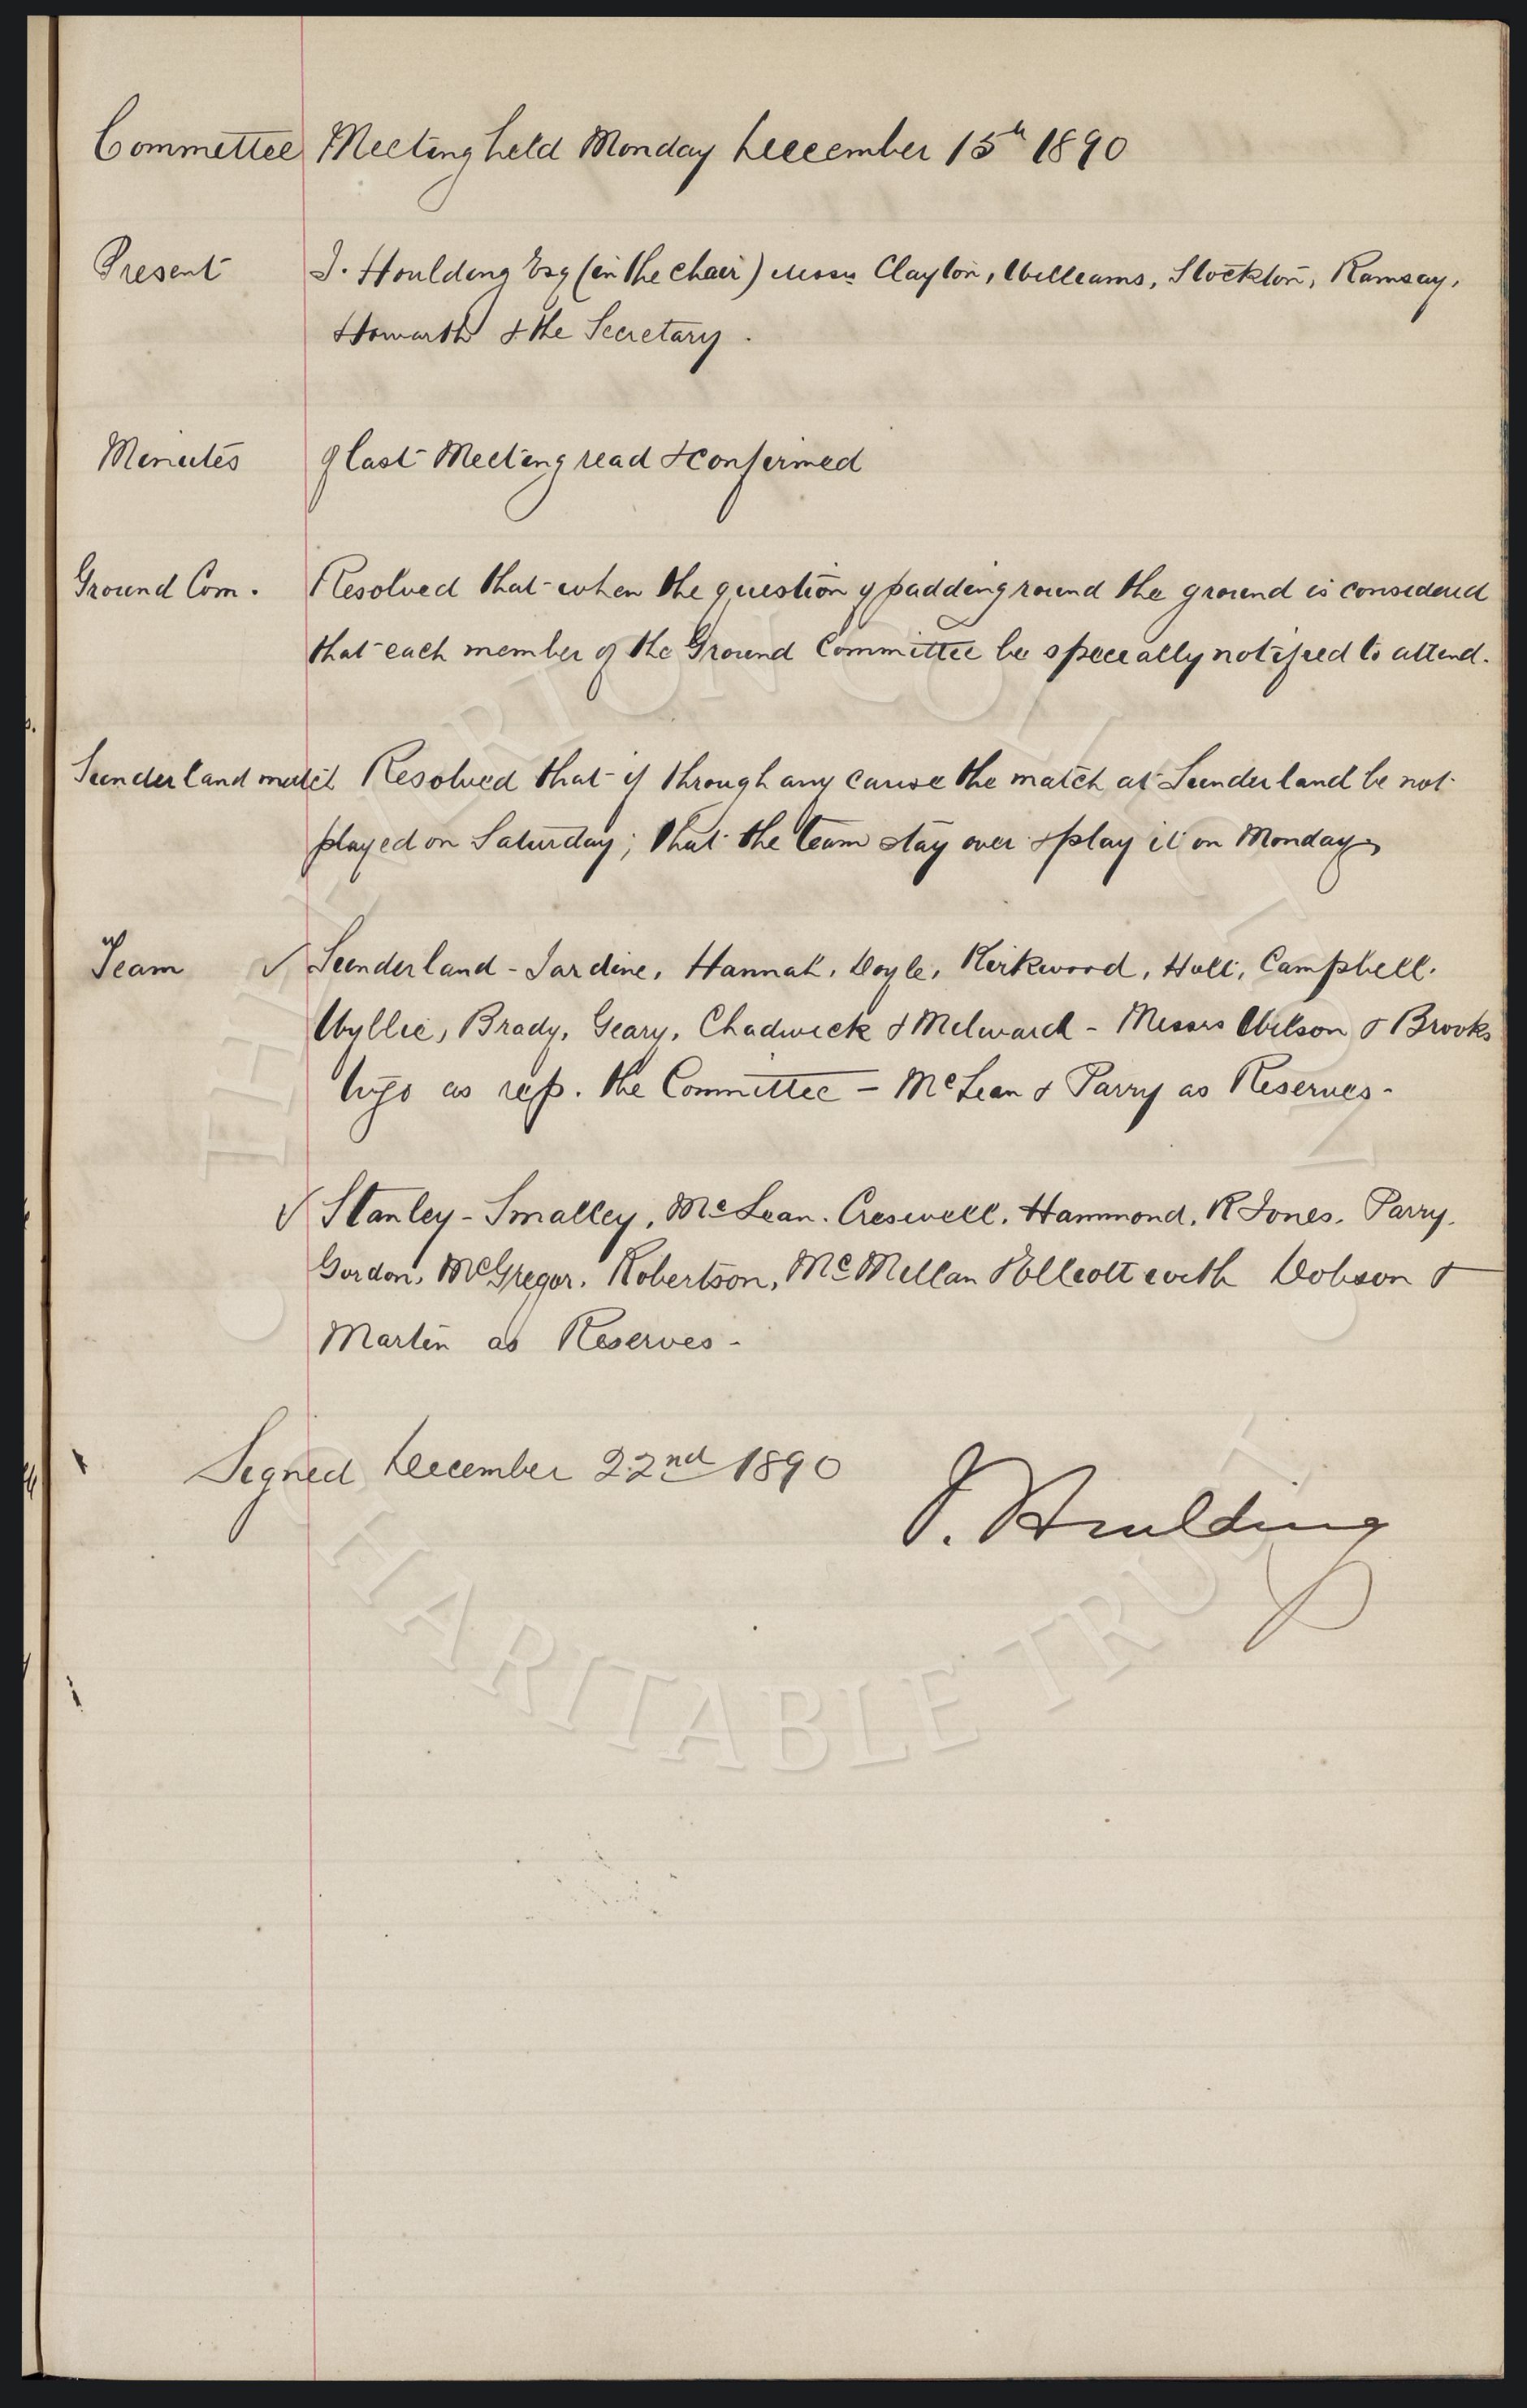 Committee Meeting held Monday December 15th 1890
Present J. Houlding Esq (in the chair) Messrs Clayton, Williams, Stockton, Ramsay,
Howarth & the Secretary.
Minutes of last Meeting read & confirmed
Ground Com. Resolved that when the question of padding round the ground is considered
that each member of the Ground Committee be specially notified to attend.
Sunderland match Resolved that if through any cause the match at Sunderland be not
played on Saturday; that the team stay over & play it on Monday
Team ✓ Sunderland - Jardine, Hannah, Doyle, Kirkwood, Holt, Campbell.
Wyllie, Brady, Geary, Chadwick & Milward - Messrs Wilson & Brooks
to go as rep. the Committee - McLean & Parry as Reserves -
✓ Stanley - Smalley, McLean. Creswell. Hammond. R Jones. Parry.
Gordon. McGregor. Robertson, McMillan & Ellcott with Dobson &
Martin as Reserves -
Signed December 22nd 1890
J. Houlding
CHARITABLE TRUST